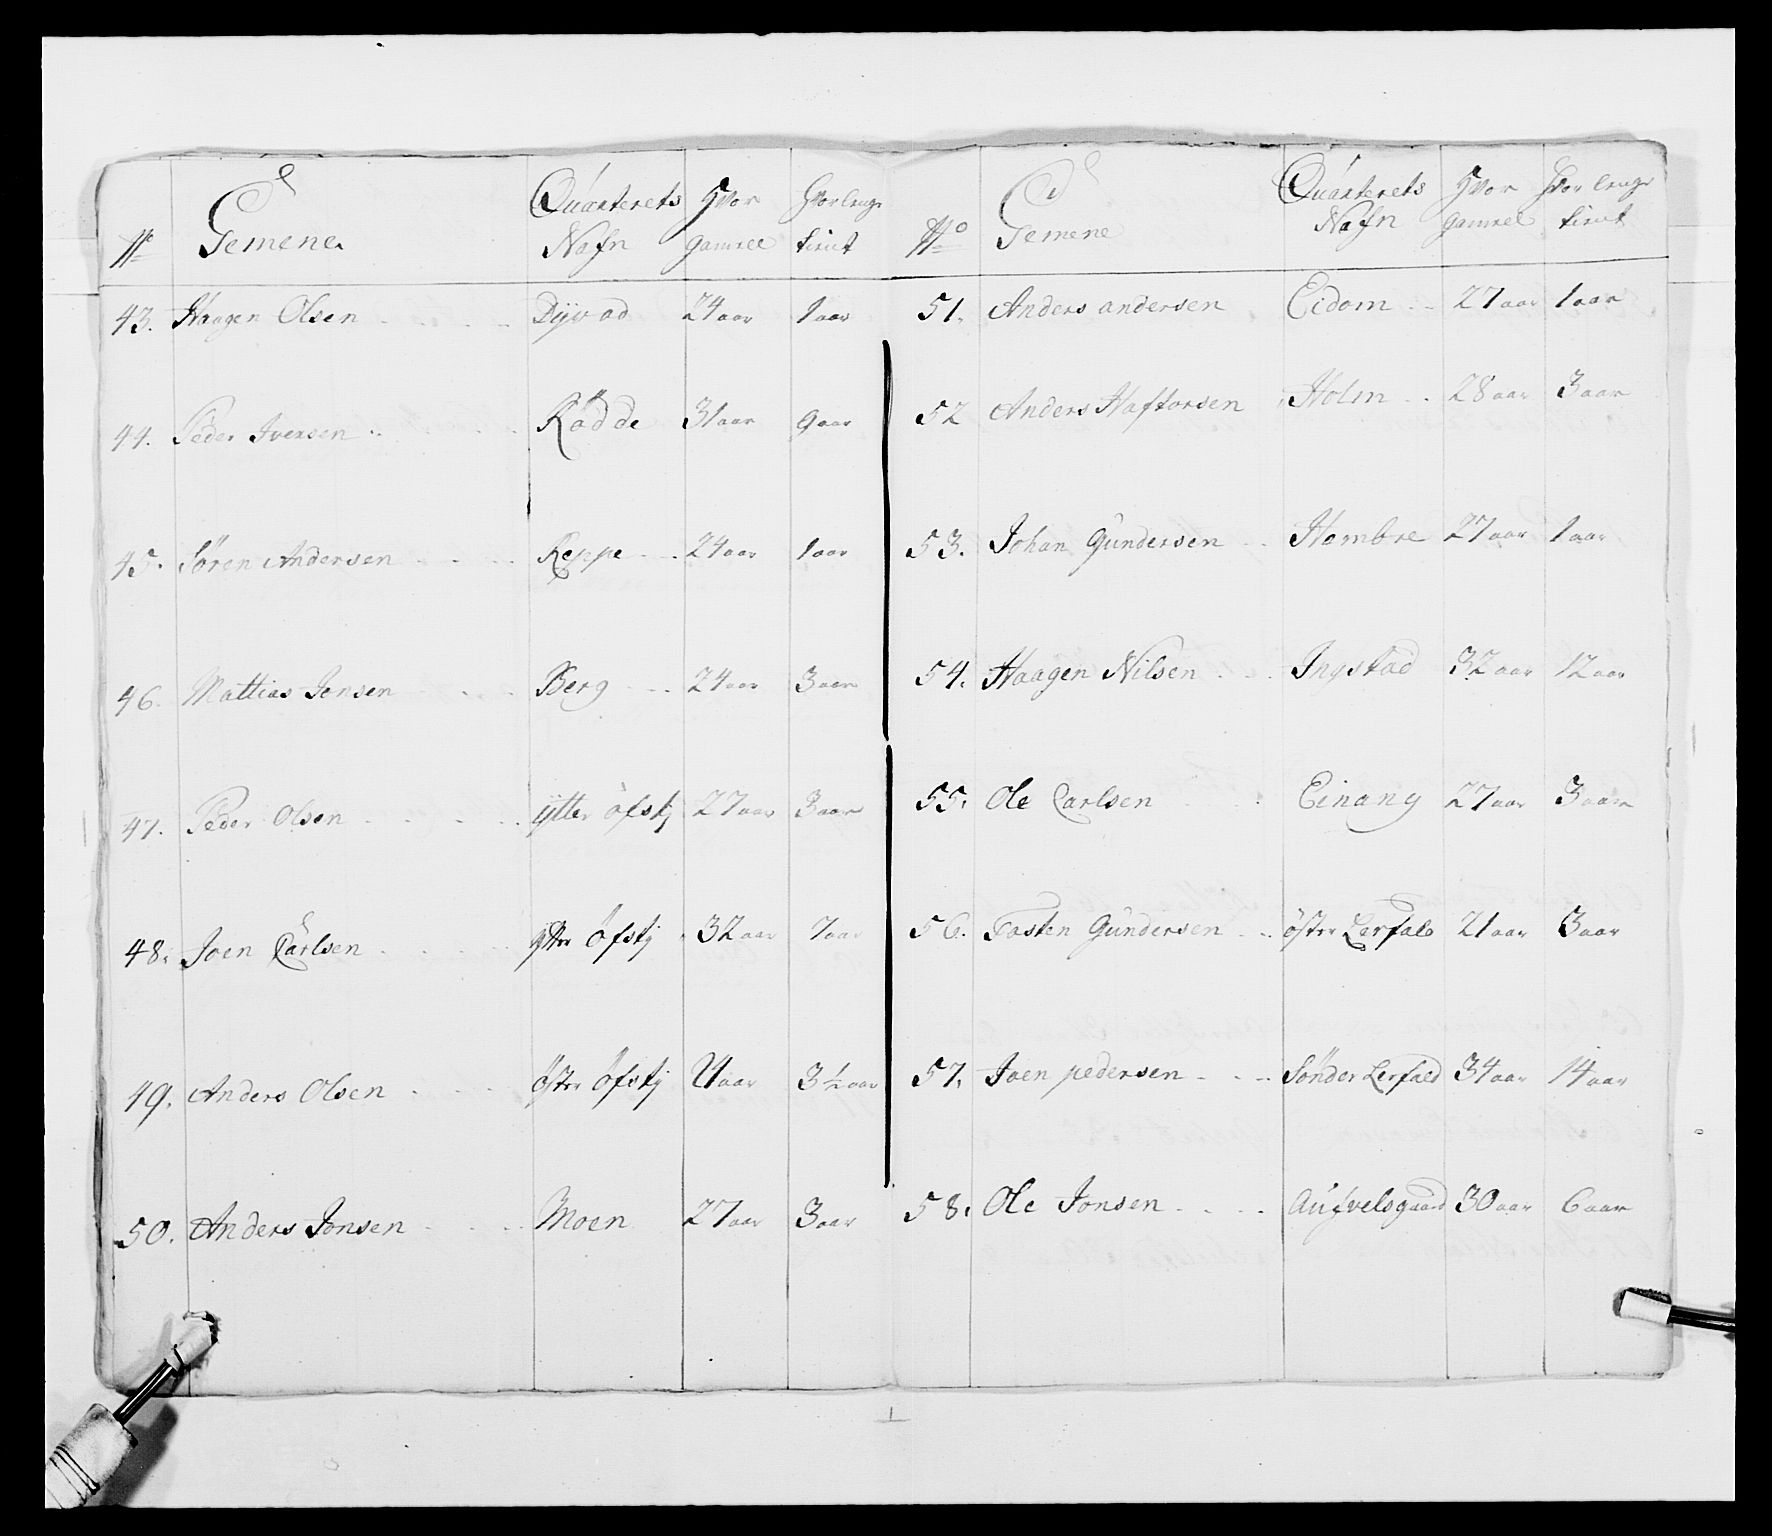 No Gemene Quarterets Nafn Hvor gamel Hvorlenge tient
43. Haagen Olsen Dyvad 24 aar 1 aar
44. Peder Iversen Rödde 31 aar 9 aar
45. Sören Andersen Reppe 24 aar 1 aar
46. Mattias Jensen Berg 24 aar 3 aar
47. Peder Olsen ÿtter öfstj 27 aar 3 aar
48. Joen Carlsen ytter öfstj 32 aar 7 aar
49. Anders Olsen öster öfstj 21 aar 3 ½ aar
50. Anders Jonsen Moen 27 aar 3 aar
No Gemene Quarterets Nafn Hvor gamel Hvor lenge tient
51. Anders andersen Eidom 27 aar 1 aar
52 Anders Haftorsen Holm 28 aar 3 aar
53. Johan Gundersen Hembre 27 aar 1 aar
54. Haagen Nilsen Ingstad 32 aar 12 aar
55. Ole Carlsen Einang 27 aar 3 aar
56. Tosten Gundersen öster Lerfald 21 aar 3 aar
57. Joen pedersen Sönder Lerfald 34 aar 14 aar
58. Ole Jonsen 30 aar 6 aar